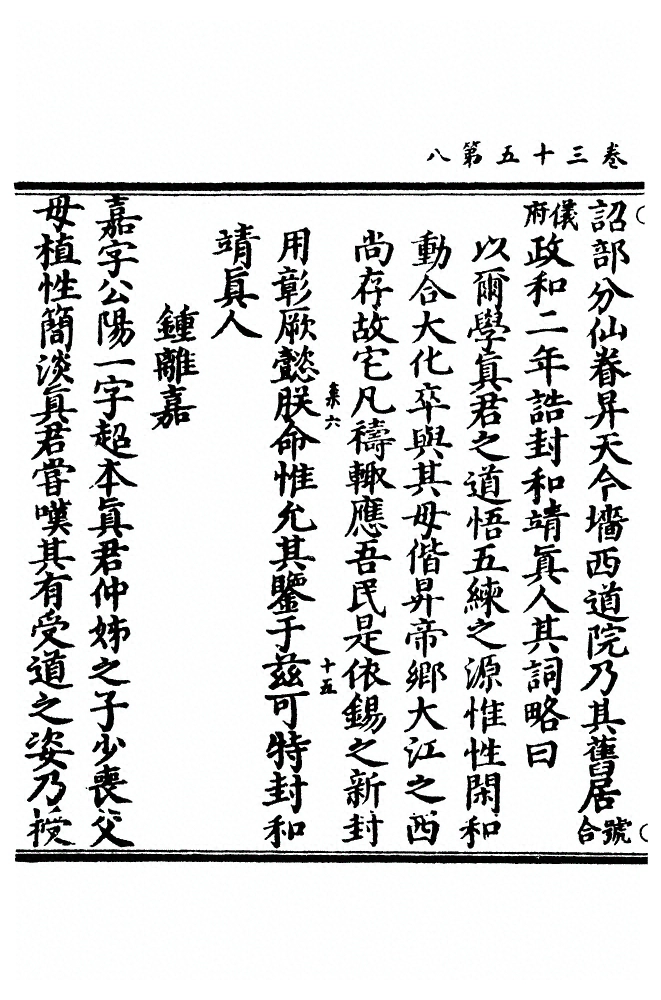 卷三十五第八
詔部分仙眷昇天今墻西道院乃其舊居號合
儀府政和二年誥封和靖眞人其詞略曰
以爾學眞君之道悟五練之源惟性閑和
動合大化卒與其母偕昇帝鄉大江之西
尚存故宅凡禱輙應吾民是依錫之新封
菜六 十五
用彰厥懿朕命惟允其鑒于兹可特封和
靖眞人
鍾離嘉
嘉字公陽一字超本眞君仲姊之子少喪父
母植性簡淡眞君嘗嘆其有受道之姿乃授